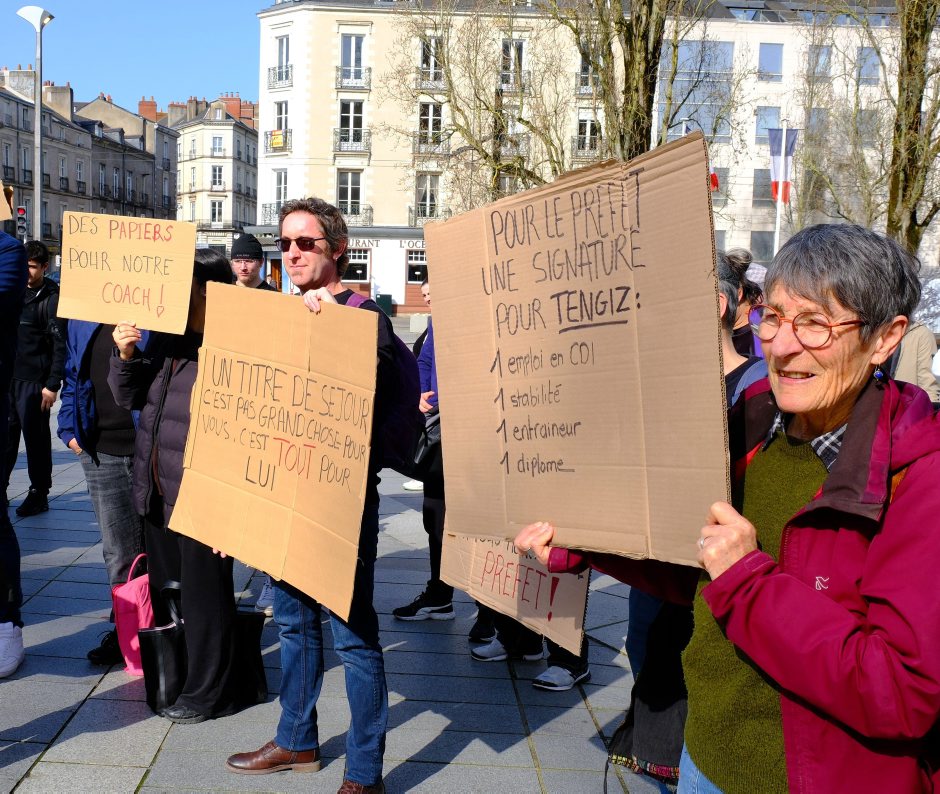 DES PAPIERS
POUR NOTRE
COACH !
UN TITRE DE SEJOUR
C'EST PAS GRAND CHOSE POUR
VOUS, C'EST TOUT POUR
LUI
POUR LE PREFET
UNE SIGNATURE
POUR TENGIZ :
1 emploi en CDI
1 stabilité
1 entraineur
1 diplome
PREFET !
RESTAURANT L'OCE